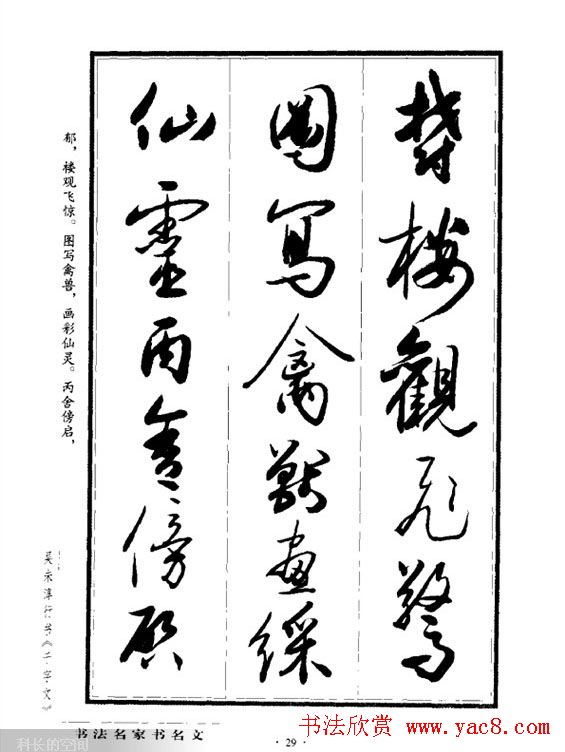 鬱樓觀飛驚
圖寫禽獸畫綵
仙靈丙舍傍啓
郁，楼观飞惊。图写禽兽，画彩仙灵。丙舍傍启，
吴未淳行书《千字文》
书法名家书名文
·29·
科长的空间
书法欣赏 www.yac8.com